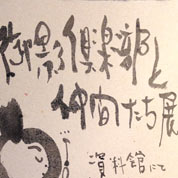 御影倶楽部と
仲間たち展
資料館にて